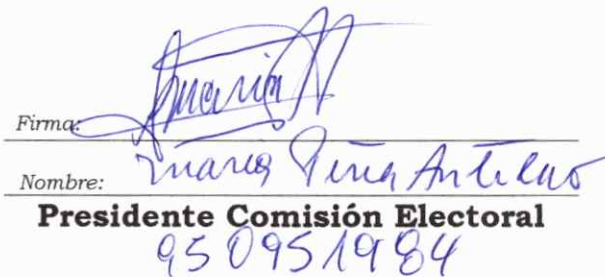 Firma: Maria
Nombre: Maria Piña Antilao
Presidente Comisión Electoral
950951984